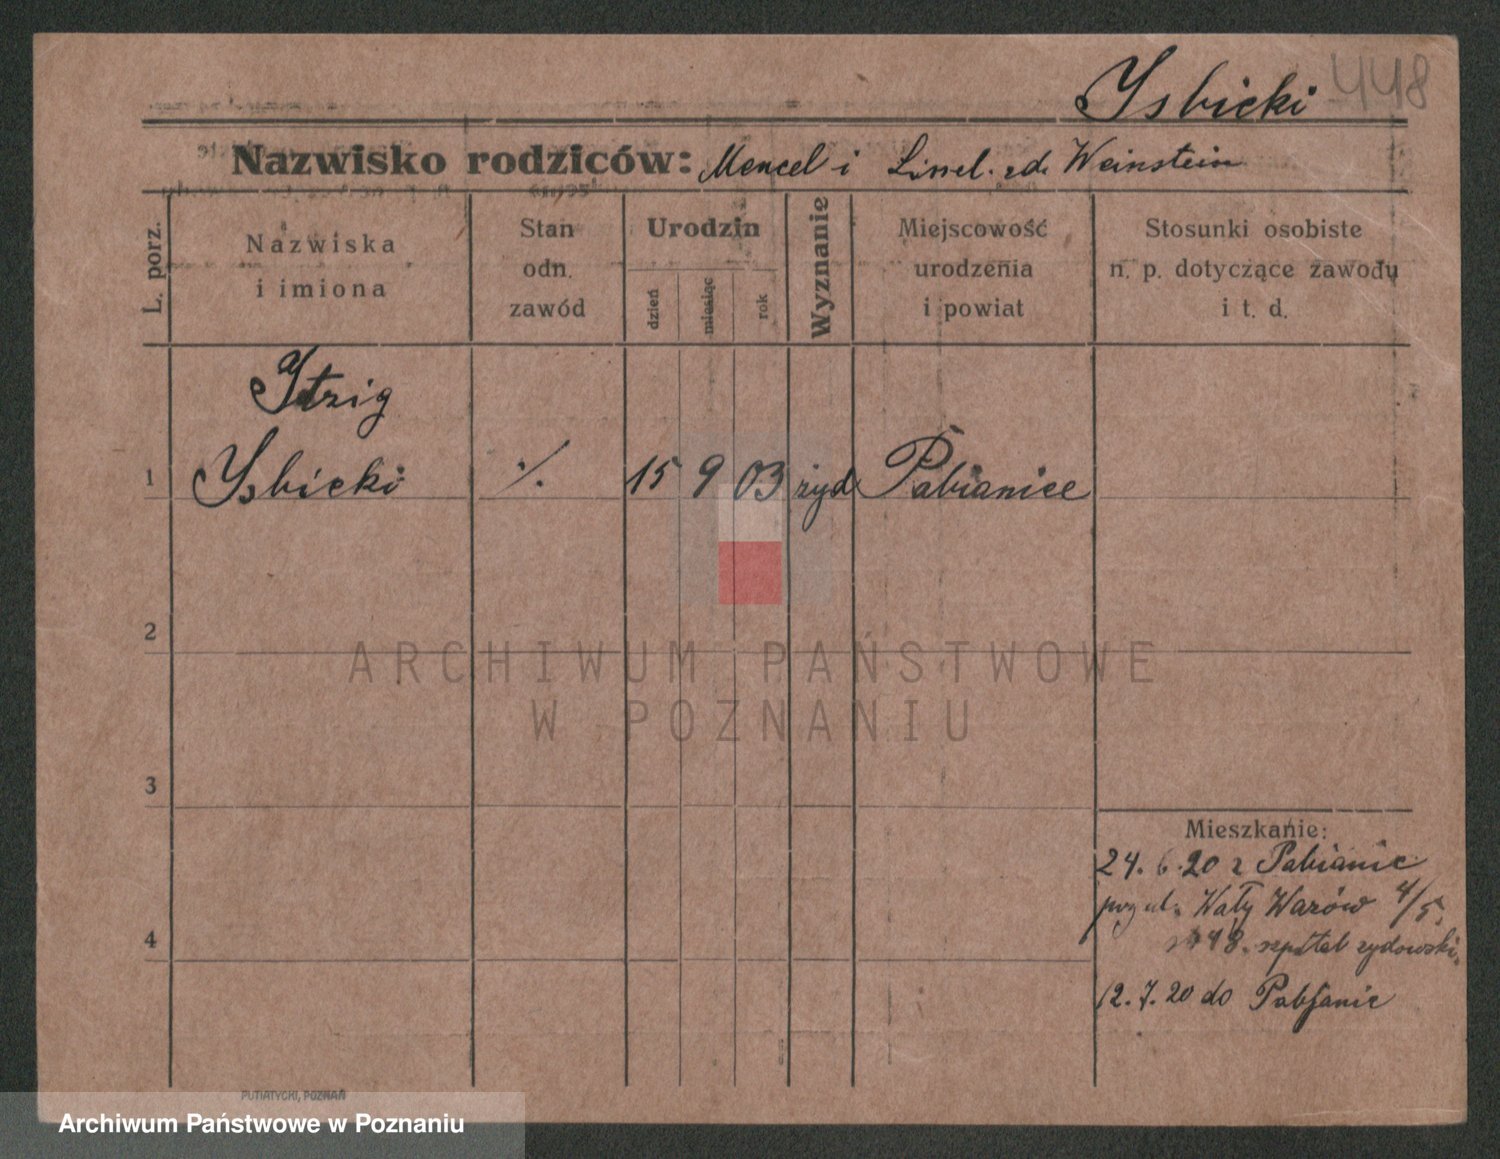 448
Ysbicki
Nazwisko rodziców: Mencel i Lissel. zd. Weinstein
L. porz.
Nazwiska
i imiona
Stan
odn.
zawód
Urodzin
dzień
miesiąc
rok
Wyznanie
Miejscowość
urodzenia
i powiat
Stosunki osobiste
n. p. dotyczące zawodu
i t. d.
Itzig
1 Ysbicki ./. 15 9 03 żyd Pabianice
2
3
4
Mieszkanie:
24. 6. 20 z Pabianic
przy ul. Wały Wazów 4/5.
48. szpital żydowski.
12. 7. 20 do Pabjanic
PUTIATYCKI, POZNAŃ
ARCHIWUM PAŃSTWOWE
W POZNANIU
Archiwum Państwowe w Poznaniu